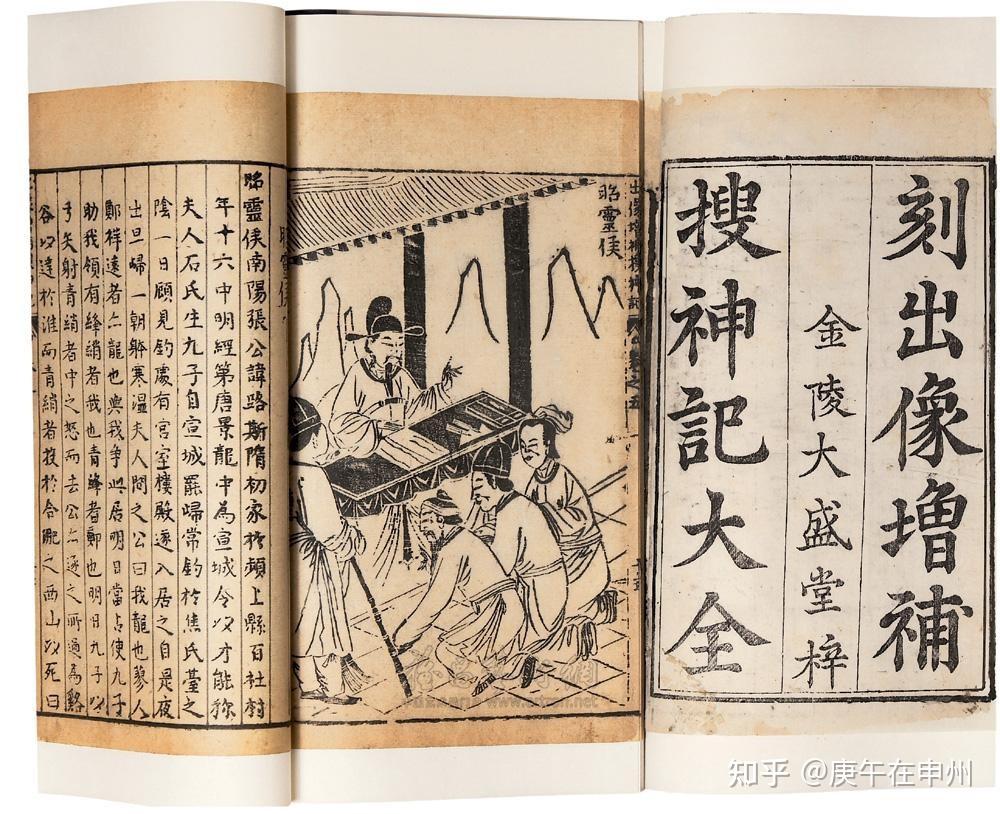 刻出像增補
金陵大盛堂梓
搜神記大全
出像增補搜神記
卷之五
昭靈侯
昭靈侯南陽張公諱路斯隋初家於潁上縣百社村
年十六中明經第唐景龍中為宣城令以才能称
夫人石氏生九子自宣城罷歸常釣於焦氏臺之
陰一日顧見釣處有宮室樓殿遂入居之自是夜
出旦歸一朝躰寒濕夫人問之公曰我龍也蓼人
鄭祥遠者亦龍也與我爭此居明日當占使九子
助我領有絳綃者我也青綃者鄭也明日九子以
弓矢射青綃者中之怒而去公亦逐之所過為谿
谷以達於淮而青綃者投於合肥之西山以死曰
知乎 @庚午在申州